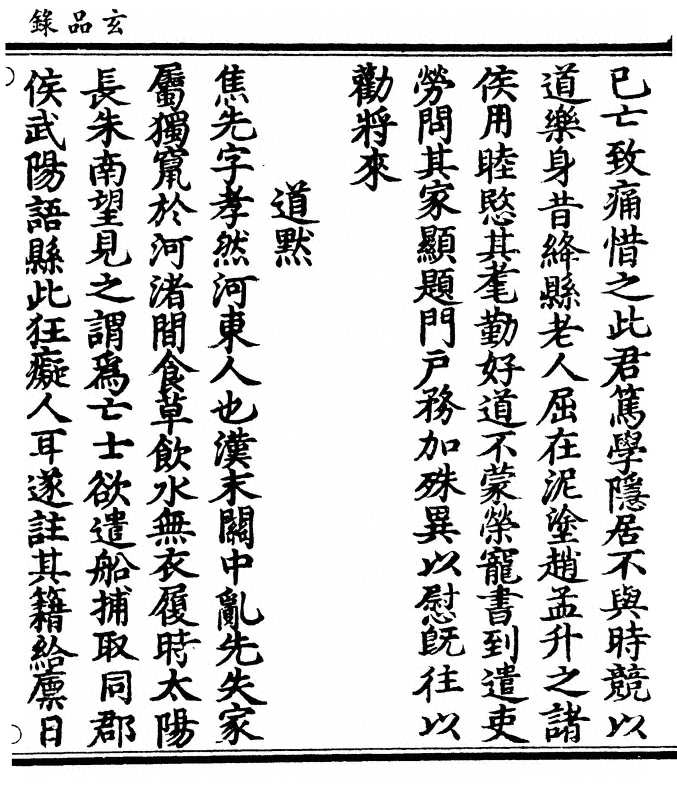 玄品錄
已亡致痛惜之此君篤學隱居不與時競以
道樂身昔絳縣老人屈在泥塗趙孟升之諸
侯用睦愍其耄勤好道不蒙榮寵書到遣吏
勞問其家顯題門戶務加殊異以慰旣往以
勸將來
道默
焦先字孝然河東人也漢末關中亂先失家
屬獨竄於河渚間食草飲水無衣履時太陽
長朱南望見之謂爲亡士欲遣船捕取同郡
侯武陽語縣此狂癡人耳遂註其籍給廩日